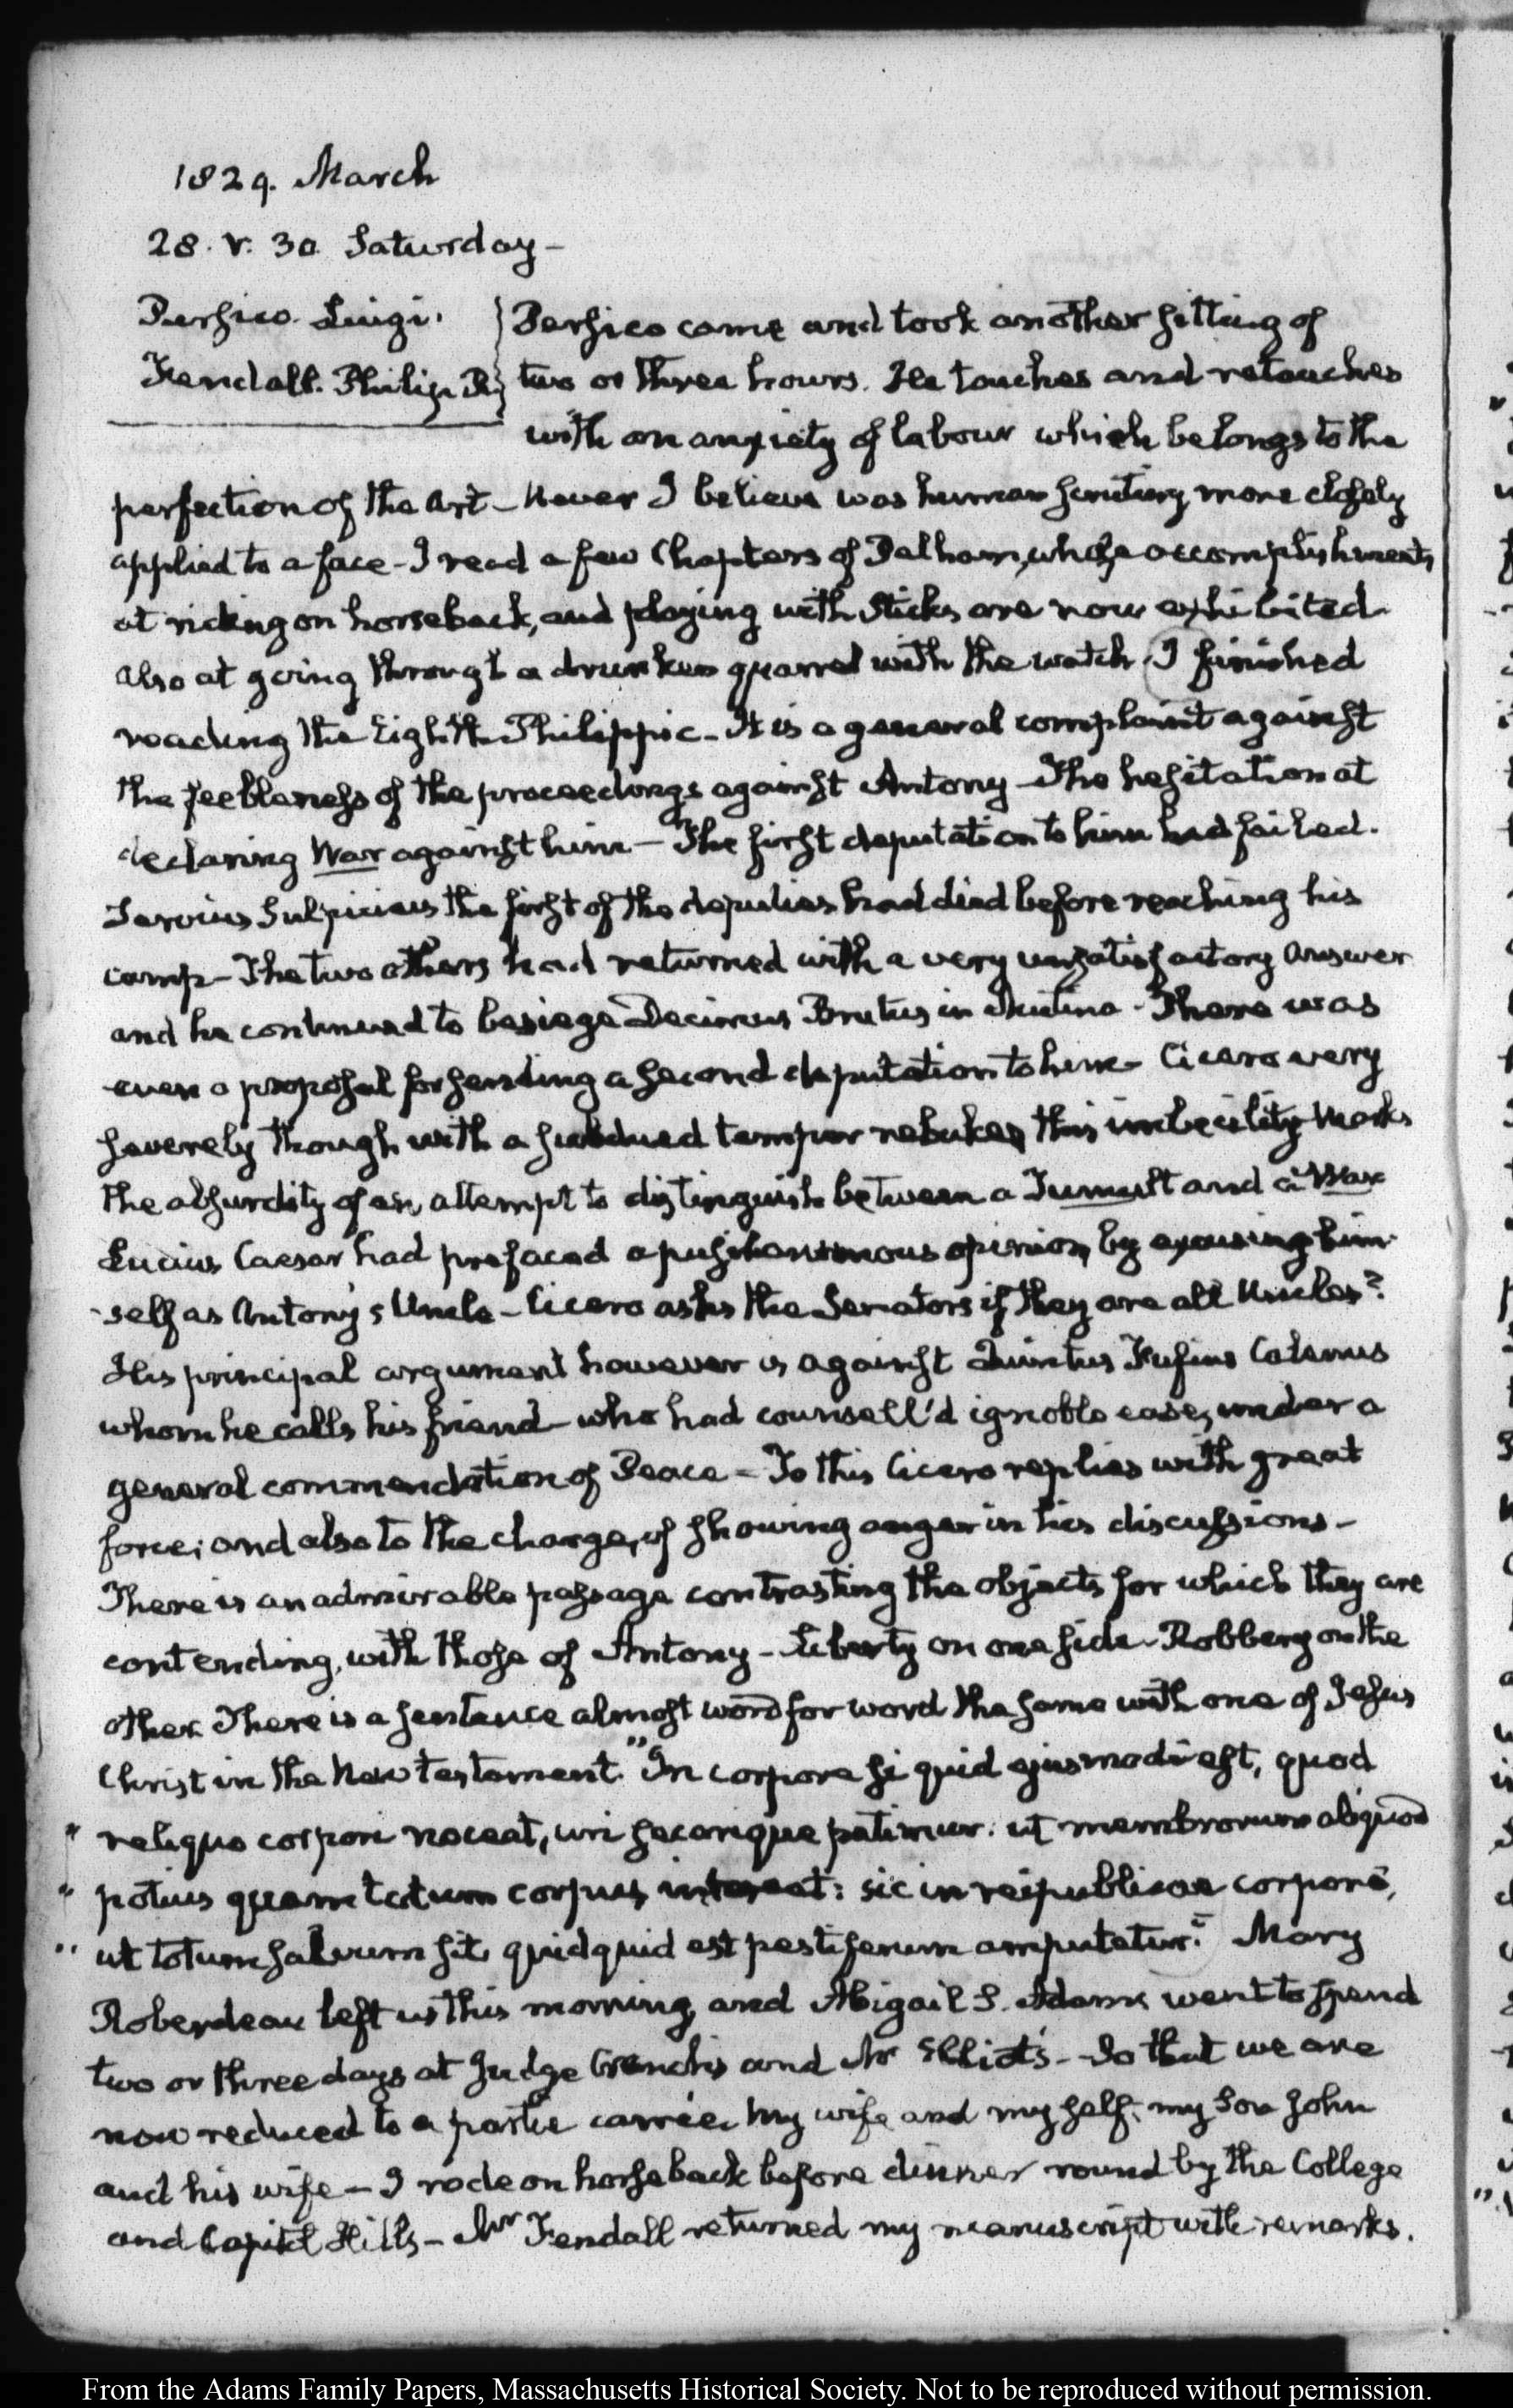 1829. March
28. V. 30 Saturday-
Persico. Luigi.
Fendall. Philip R.
Persico came and took another sitting of
two or three hours. He touches and retouches
with an anxiety of labour which belongs to the
perfection of the Art- Never I believe was human scrutiny more closely
applied to a face- I read a few Chapters of Pelham, whose accomplishments
at riding on horseback, and playing with Sticks are now exhibited
also at going through a drunken quarrel with the watch. I finished
reading the Eighth Philippic- It is a general complaint against
the feebleness of the proceedings against Antony- The hesitation at
declaring War against him- The first deputation to him had failed.
Servius Sulpicius the first of the deputies had died before reaching his
camp- The two others had returned with a very unsatisfactory answer
and he continued to besiege Decimus Brutus in Mutina- There was
even a proposal for sending a second deputation to him- Cicero very
severely though with a subdued temper rebukes this imbecility Marks
the absurdity of an attempt to distinguish between a Tumult and a War
Lucius Caesar had prefaced a pusillanimous opinion, by excusing him-
-self as Antony's Uncle- Cicero asks the Senators if they are all Uncles?
His principal argument however is against Quintus Fufius Calenus
whom he calls his friend- who had counsell'd ignoble ease, under a
general commendation of Peace- To this Cicero replies with great
force; and also to the charge, of showing anger in his discussions-
There is an admirable passage contrasting the objects for which they are
contending, with those of Antony- Liberty on one side- Robbery on the
other. There is a sentence almost word for word the same with one of Jesus
Christ in the New testament. "In corpore si quid ejusmodi est, quod
" reliquo corpori noceat, uri secarique patimur: ut membrorum aliquod
" potius quam totum corpus intereat: sic in reipublicae corpore,
" ut totum salvum sit, quidquid est pestiferum amputetur." Mary
Roberdeau left us this morning, and Abigail S. Adams went to spend
two or three days at Judge Cranch's and Mr Elliot's- So that we are
now reduced to a partie carrée. My wife and myself, my Son John
and his wife- I rode on horseback before dinner round by the College
and Capitol Hills- Mr Fendall returned my manuscript with remarks.
From the Adams Family Papers, Massachusetts Historical Society. Not to be reproduced without permission.